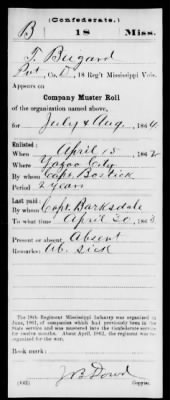 (Confederate.)
B 18 Miss.
T. Bugard
Pvt, Co. D, 18 Reg't Mississippi Vols.
Appears on
Company Muster Roll
of the organization named above,
for July & Aug, 1864.
Enlisted:
When April 15, 1862
Where Yazoo City
By whom Capt. Bostick
Period 2 years
Last paid:
By whom Capt. Barksdale
To what time April 30, 1863
Present or absent Absent
Remarks: Ab. sick
The 18th Regiment Mississippi Infantry was organized in
June, 1861, of companies which had previously been in the
State service and was mustered into the Confederate service
for twelve months. About April, 1862, the regiment was
organized for the war.
Book mark:
(642)
Copyist.